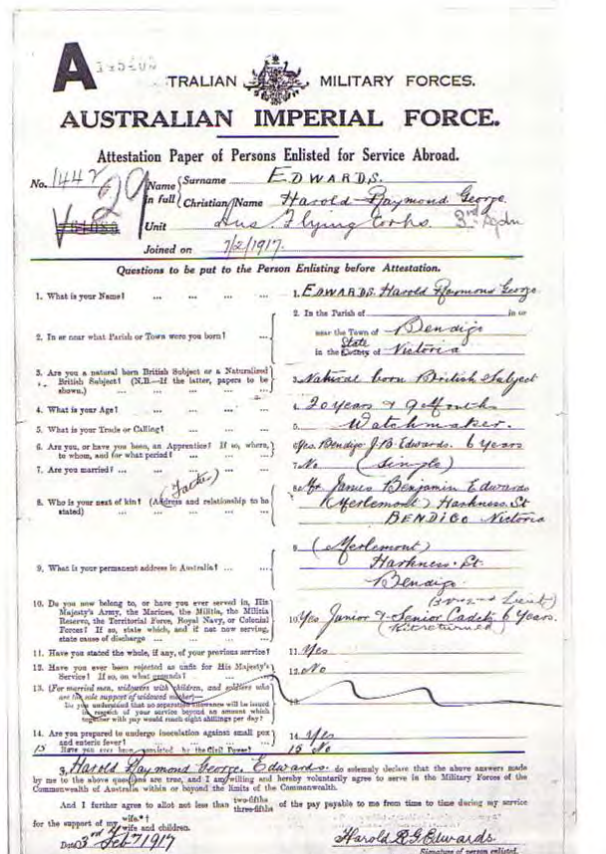 A
TRALIAN MILITARY FORCES.
AUSTRALIAN IMPERIAL FORCE.
Attestation Paper of Persons Enlisted for Service Abroad.
No. 1447
29
Name in full { Surname EDWARDS.
Christian Name Harold Raymond George.
Unit Aus. Flying Corps. 3rd Sqdn
Joined on 7/2/1917.
Questions to be put to the Person Enlisting before Attestation.
1. What is your Name? ... ... ... 1. EDWARDS. Harold Raymond George
2. In or near what Parish or Town were you born? ... 2. In the Parish of in or
near the Town of Bendigo
in the State of Victoria
3. Are you a natural born British Subject or a Naturalized British Subject? (N.B.—If the latter, papers to be shown.) 3. Natural born British Subject
4. What is your Age? ... ... ... 4. 20 years & 9 Months
5. What is your Trade or Calling? ... ... 5. Watchmaker.
6. Are you, or have you been, an Apprentice? If so, where, to whom, and for what period? 6. Yes. Bendigo J.B. Edwards. 6 Years
7. Are you married? ... ... ... 7. No (Single)
8. Who is your next of kin? (Address and relationship to be stated) (Father) 8. Mr. James Benjamin Edwards
(Merlemont) Harkness St
BENDIGO Victoria
9. What is your permanent address in Australia? ... 9. (Merlemont)
Harkness St.
Bendigo.
10. Do you now belong to, or have you ever served in, His Majesty's Army, the Marines, the Militia, the Militia Reserve, the Territorial Force, Royal Navy, or Colonial Forces? If so, state which, and if not now serving, state cause of discharge 10. Yes Junior & Senior Cadets 6 Years.
11. Have you stated the whole, if any, of your previous service? 11. Yes
12. Have you ever been rejected as unfit for His Majesty's Service? If so, on what grounds? 12. No
13. (For married men, widowers with children, and soldiers who are the sole support of widowed mother—
Do you understand that no separation allowance will be issued in respect of your service beyond an amount which together with pay would reach eight shillings per day? 13.
14. Are you prepared to undergo inoculation against small pox and enteric fever? 14. Yes
15 Have you ever been convicted by the Civil Power? 15 No
I, Harold Raymond George. Edwards. do solemnly declare that the above answers made
by me to the above questions are true, and I am willing and hereby voluntarily agree to serve in the Military Forces of the
Commonwealth of Australia within or beyond the limits of the Commonwealth.
And I further agree to allot not less than two-fifths three-fifths of the pay payable to me from time to time during my service
for the support of my wife.*† wife and children.
Date 3rd Feb 1917 Harold R G Edwards
Signature of person enlisted.